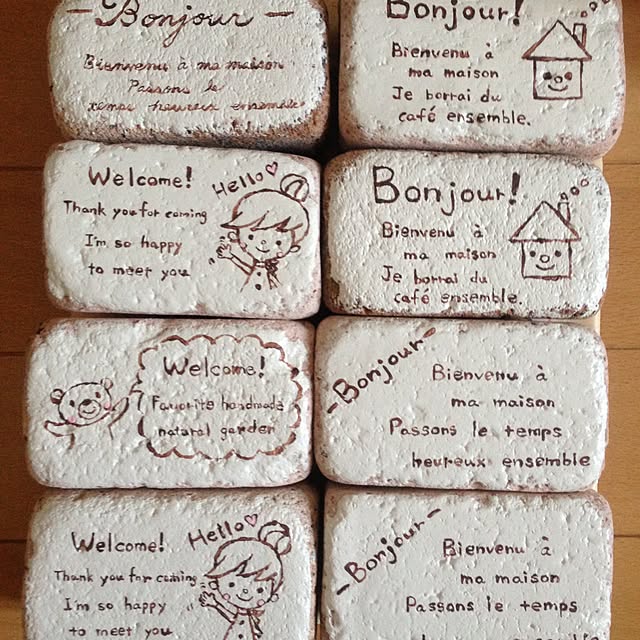 - Bonjour -
Bienvenu à ma maison
Passons le
temps heureux ensemble
Bonjour!
Bienvenu à
ma maison
Je borrai du
café ensemble.
Welcome!
Hello♡
Thank you for coming
I'm so happy
to meet you
Bonjour!
Bienvenu à
ma maison
Je borrai du
café ensemble.
Welcome!
Favorite handmade
natural garden
-Bonjour-
Bienvenu à
ma maison
Passons le temps
heureux ensemble
Welcome!
Hello♡
Thank you for coming
I'm so happy
to meet you
-Bonjour-
Bienvenu à
ma maison
Passons le temps